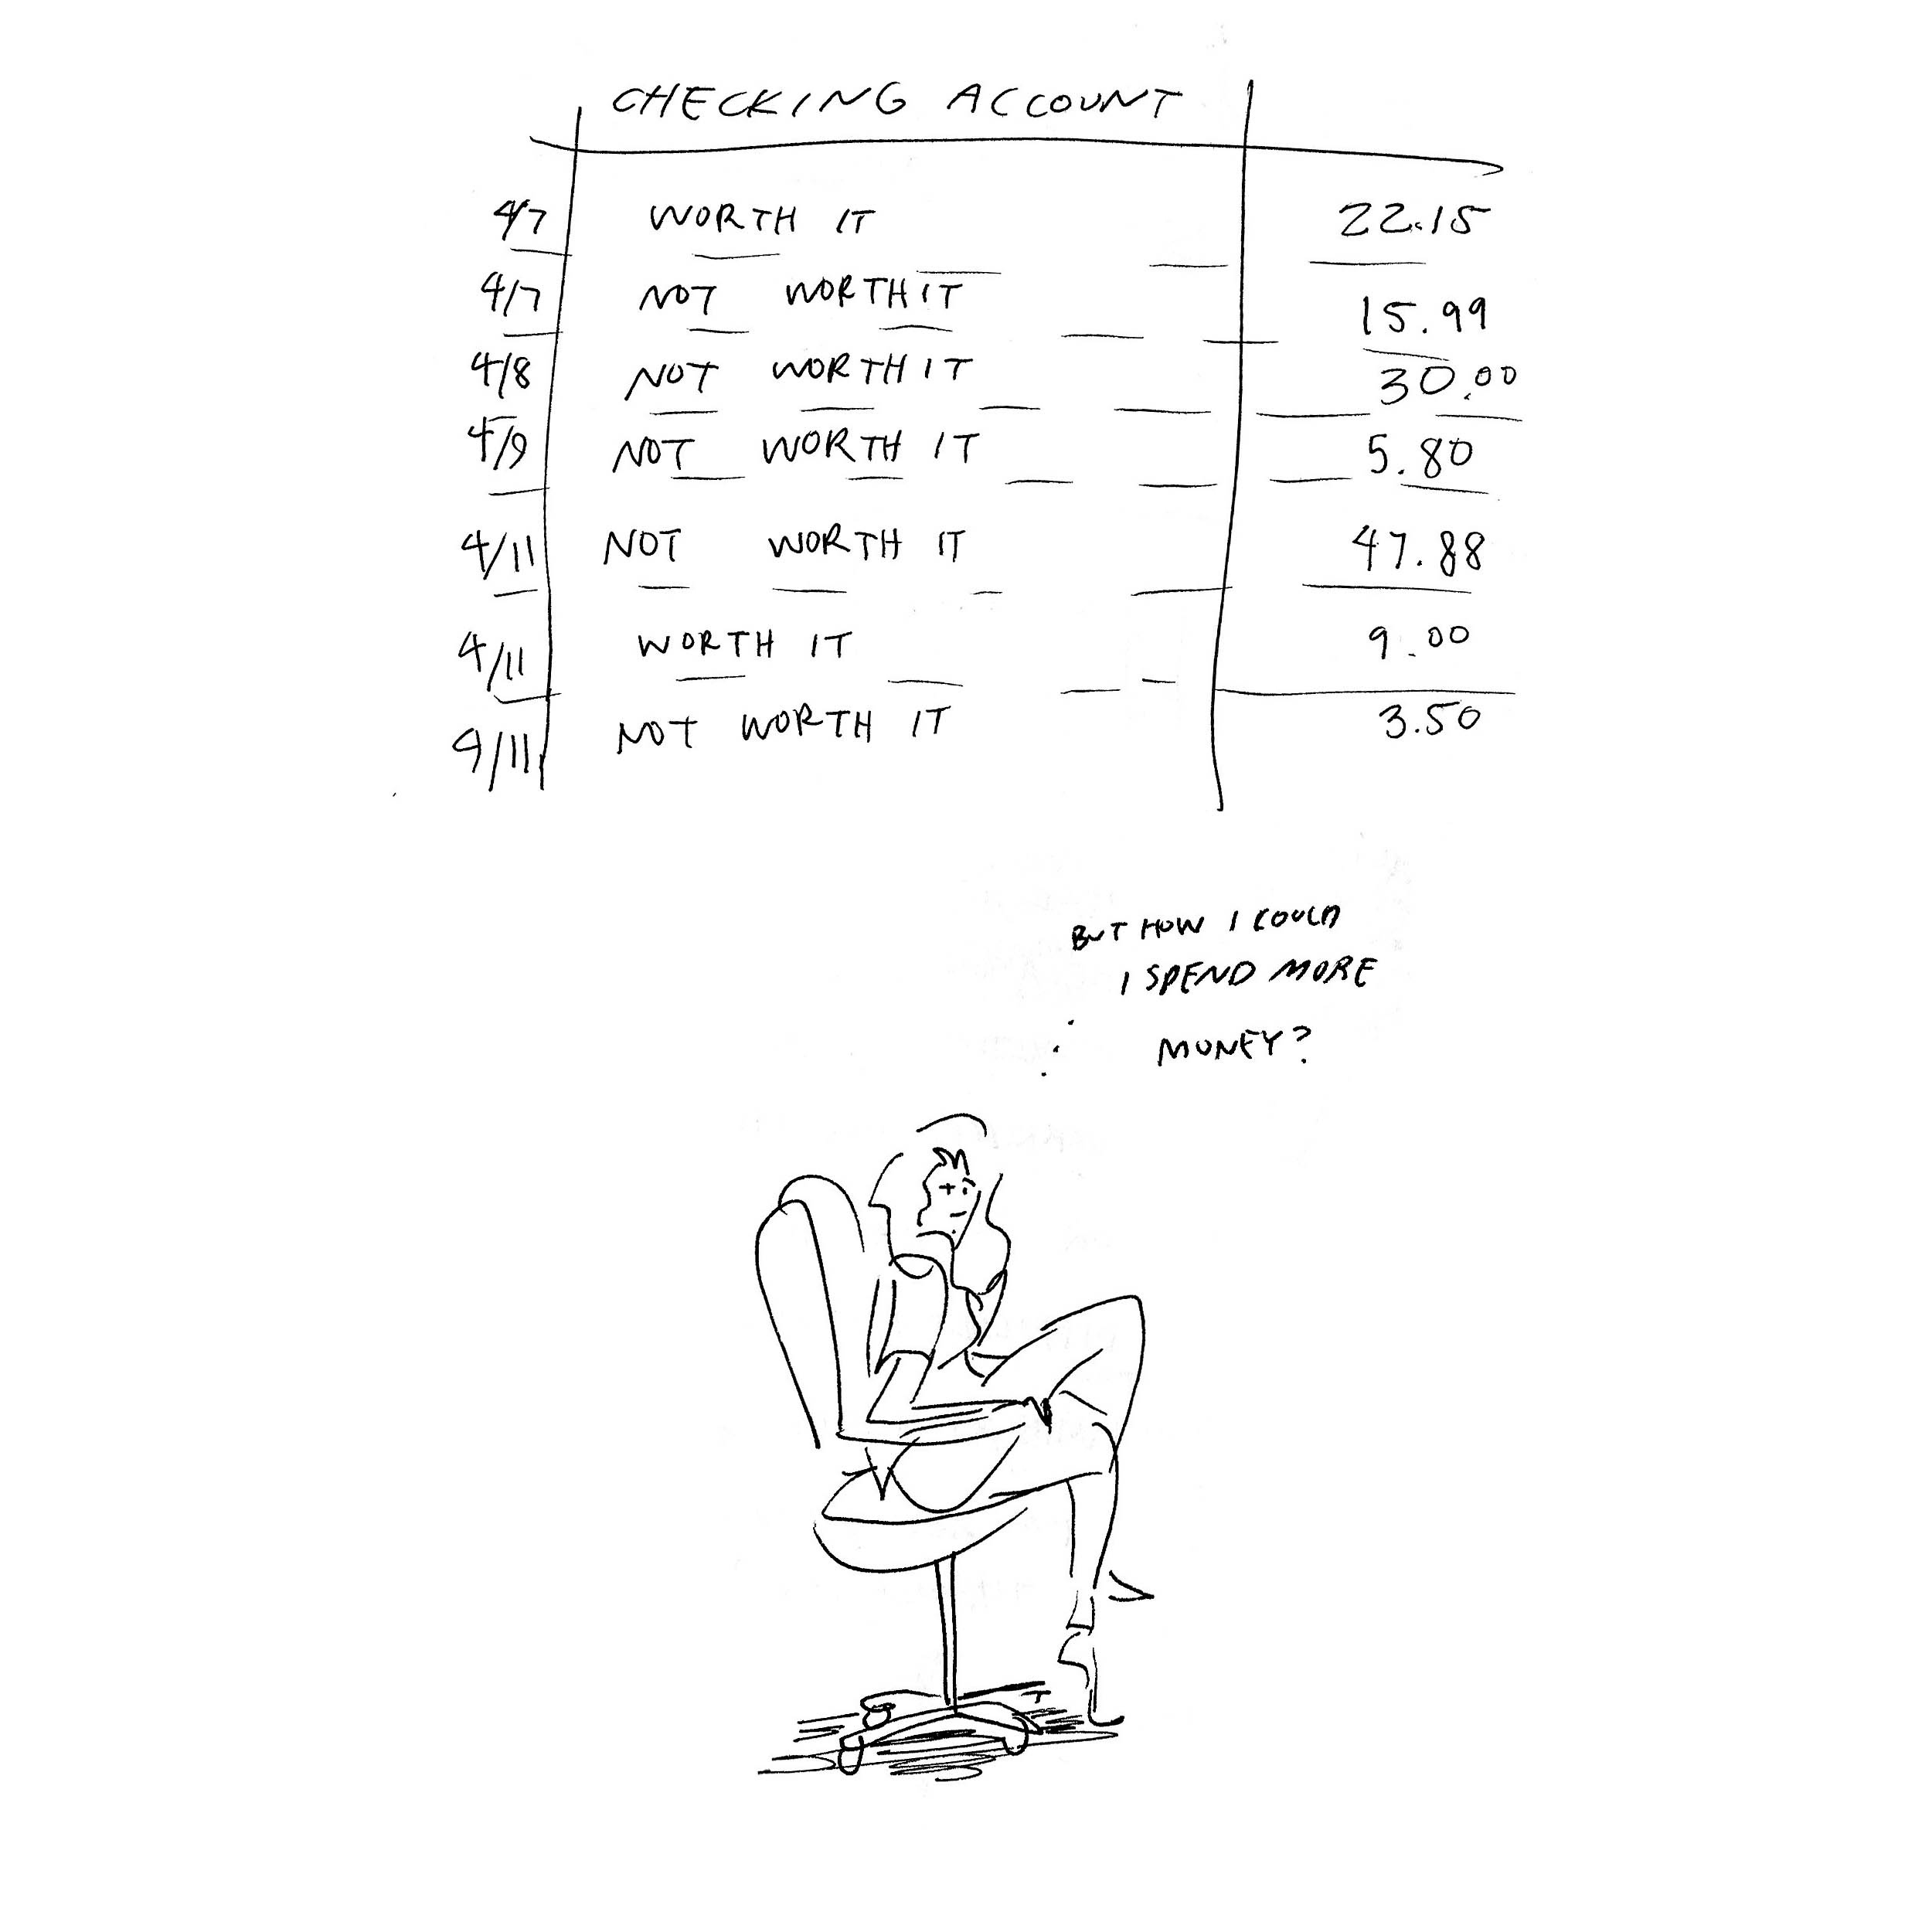 CHECKING ACCOUNT
4/7 WORTH IT 22.15
4/7 NOT WORTH IT 15.99
4/8 NOT WORTH IT 30.00
4/9 NOT WORTH IT 5.80
4/11 NOT WORTH IT 47.88
4/11 WORTH IT 9.00
4/11 NOT WORTH IT 3.50
BUT HOW I COULD
I SPEND MORE
MONEY?